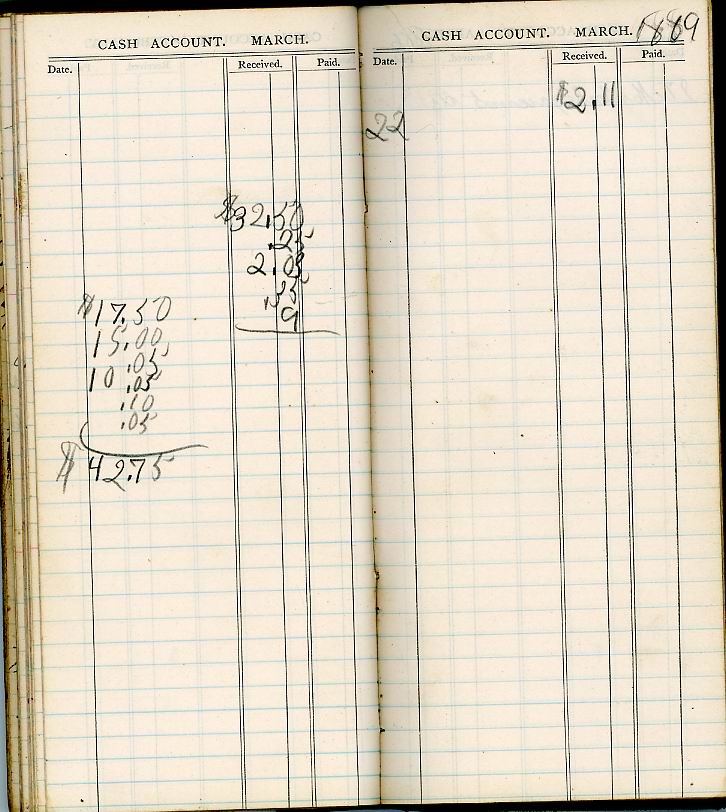 CASH ACCOUNT. MARCH.
Date. Received. Paid.
$32.50
.25
2.03
.35
9
$17.50
15.00
.05
10.05
.10
.05
$42.75
CASH ACCOUNT. MARCH. 1889
Date. Received. Paid.
$2.11
22